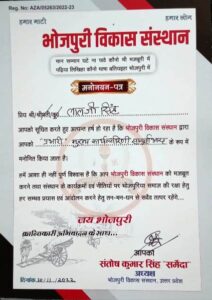 Reg. No: AZA/05263/2022-23
हमार माटी
हमार लोग
भोजपुरी विकास संस्थान
मनोनयन-पत्र
प्रिय श्री/श्रीमती/सुश्री लालजी सिंह
आपको सूचित करते हुए अत्यन्त हर्ष हो रहा है कि भोजपुरी विकास संस्थान द्वारा
आपको
के रूप
में मनोनित किया जाता है।
हमें आशा ही नहीं पूर्ण विश्वास है कि आप भोजपुरी विकास संस्थान को मजबूत
करने तथा संस्थान के कार्यक्रमों एवं नीतियों पर भोजपुरिया समाज की रक्षा हेतु
हर सम्भव प्रयास एवं आन्दोलन करने हेतु तन-मन-धन से सदैव तत्पर रहेंगे।
जय भोजपुरी
क्रान्तिकारी अभिवादन के साथ...
आपका
संतोष कुमार सिंह 'समैदा'
अध्यक्ष
भोजपुरी विकास संस्थान, उत्तर प्रदेश
दिनांक